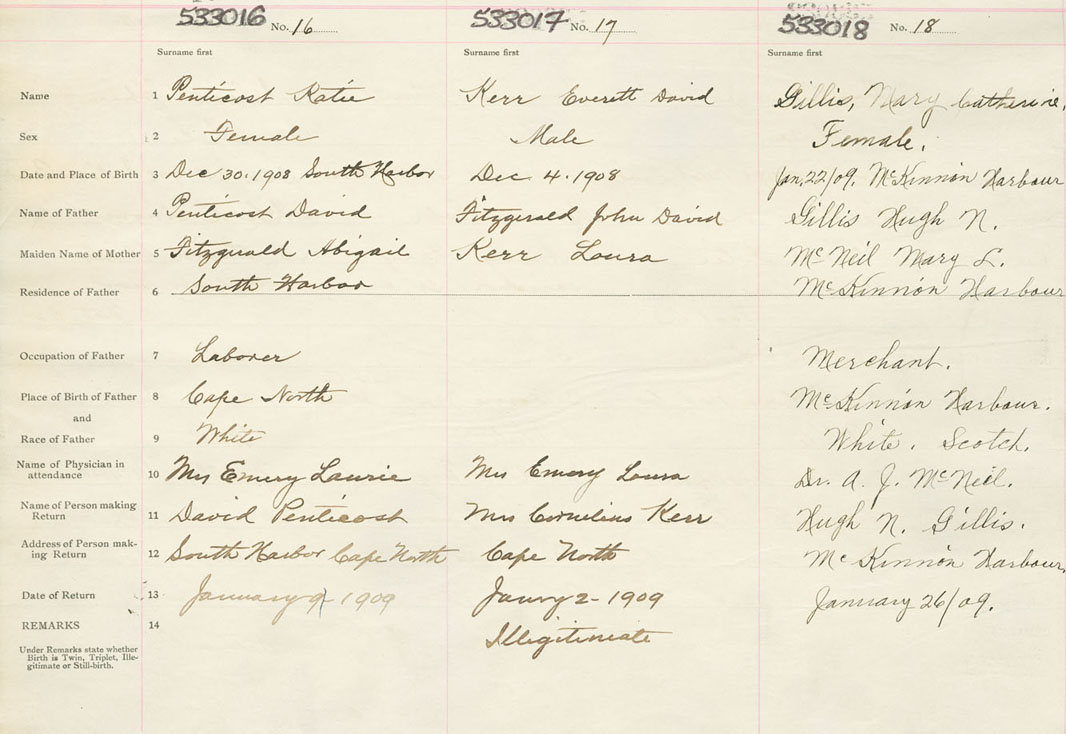 533016 No. 16 533017 No. 17 533018 No. 18
Surname first Surname first Surname first
Name 1 Penticost Katie Kerr Everett David Gillis, Mary Catherine.
Sex 2 Female Male Female.
Date and Place of Birth 3 Dec 30.1908 South Harbor Dec 4.1908 Jan.22/09. McKinnon Harbour
Name of Father 4 Penticost David Fitzgerald John David Gillis Hugh N.
Maiden Name of Mother 5 Fitzgerald Abigail Kerr Loura McNeil Mary L.
Residence of Father 6 South Harbor McKinnon Harbour
Occupation of Father 7 Laborer Merchant.
Place of Birth of Father 8 Cape North McKinnon Harbour.
and
Race of Father 9 White White. Scotch.
Name of Physician in
attendance 10 Mrs Emery Laurie Mrs Emery Loura Dr. A. J. McNeil.
Name of Person making
Return 11 David Penticost Mrs Cornelius Kerr Hugh N. Gillis.
Address of Person mak-
ing Return 12 South Harbor Cape North Cape North McKinnon Harbour,
Date of Return 13 January 9 1909 Janry 2-1909 January 26/09.
REMARKS 14 Illegitimate
Under Remarks state whether
Birth is Twin, Triplet, Ille-
gitimate or Still-birth.